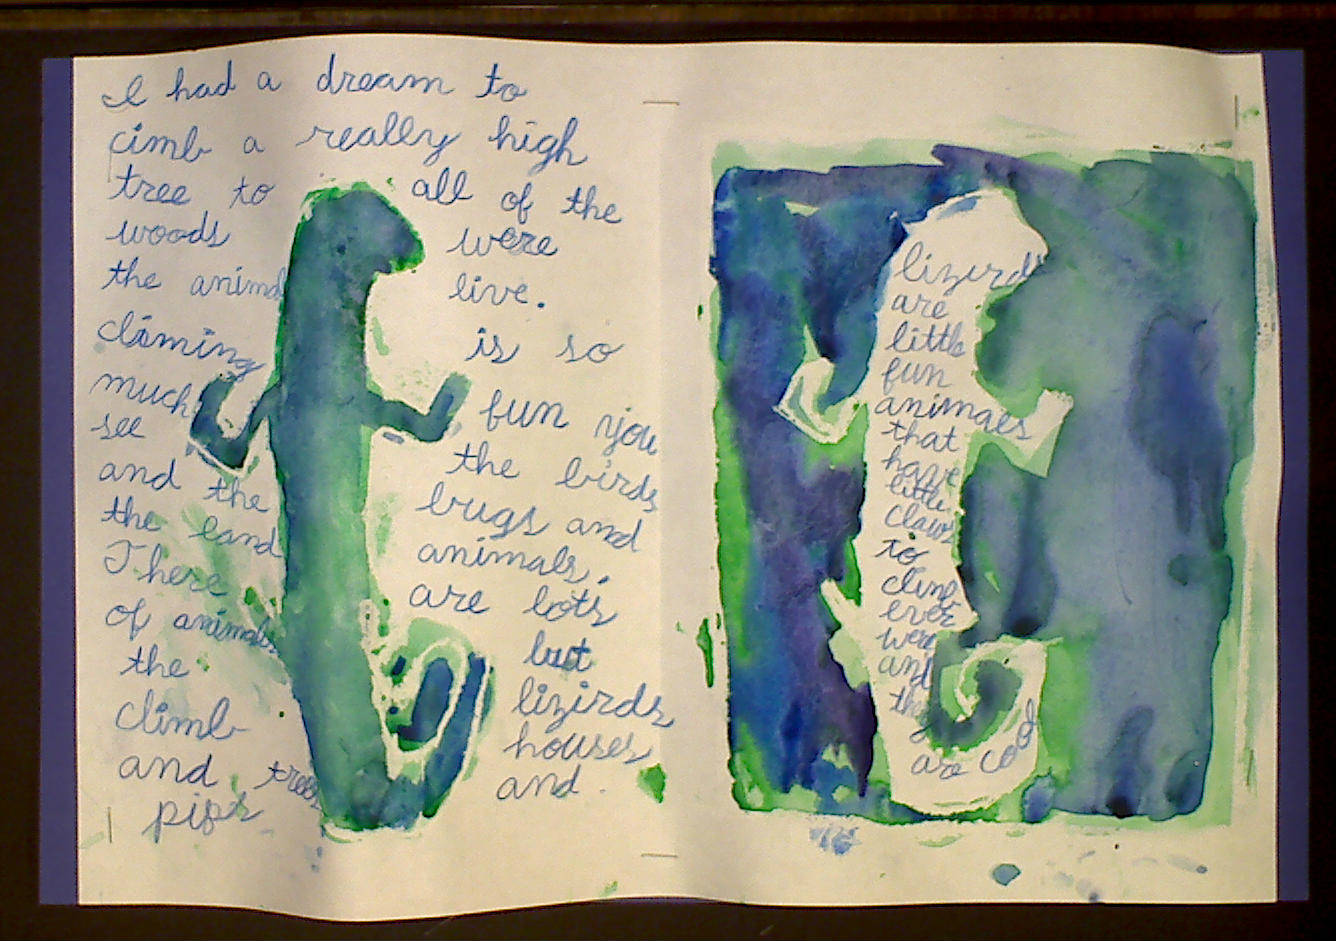 I had a dream to
cimb a really high
tree to all of the
woods were
the animals live.
claming is so
much fun you
see the birds
and the bugs and
the land animals.
There are lots
of animals but
the lizirds
climb houses
and trees and
pips
lizirds
are
little
fun
animals
that
have
little
claws
to
cling
ever
were
and
they
are cool